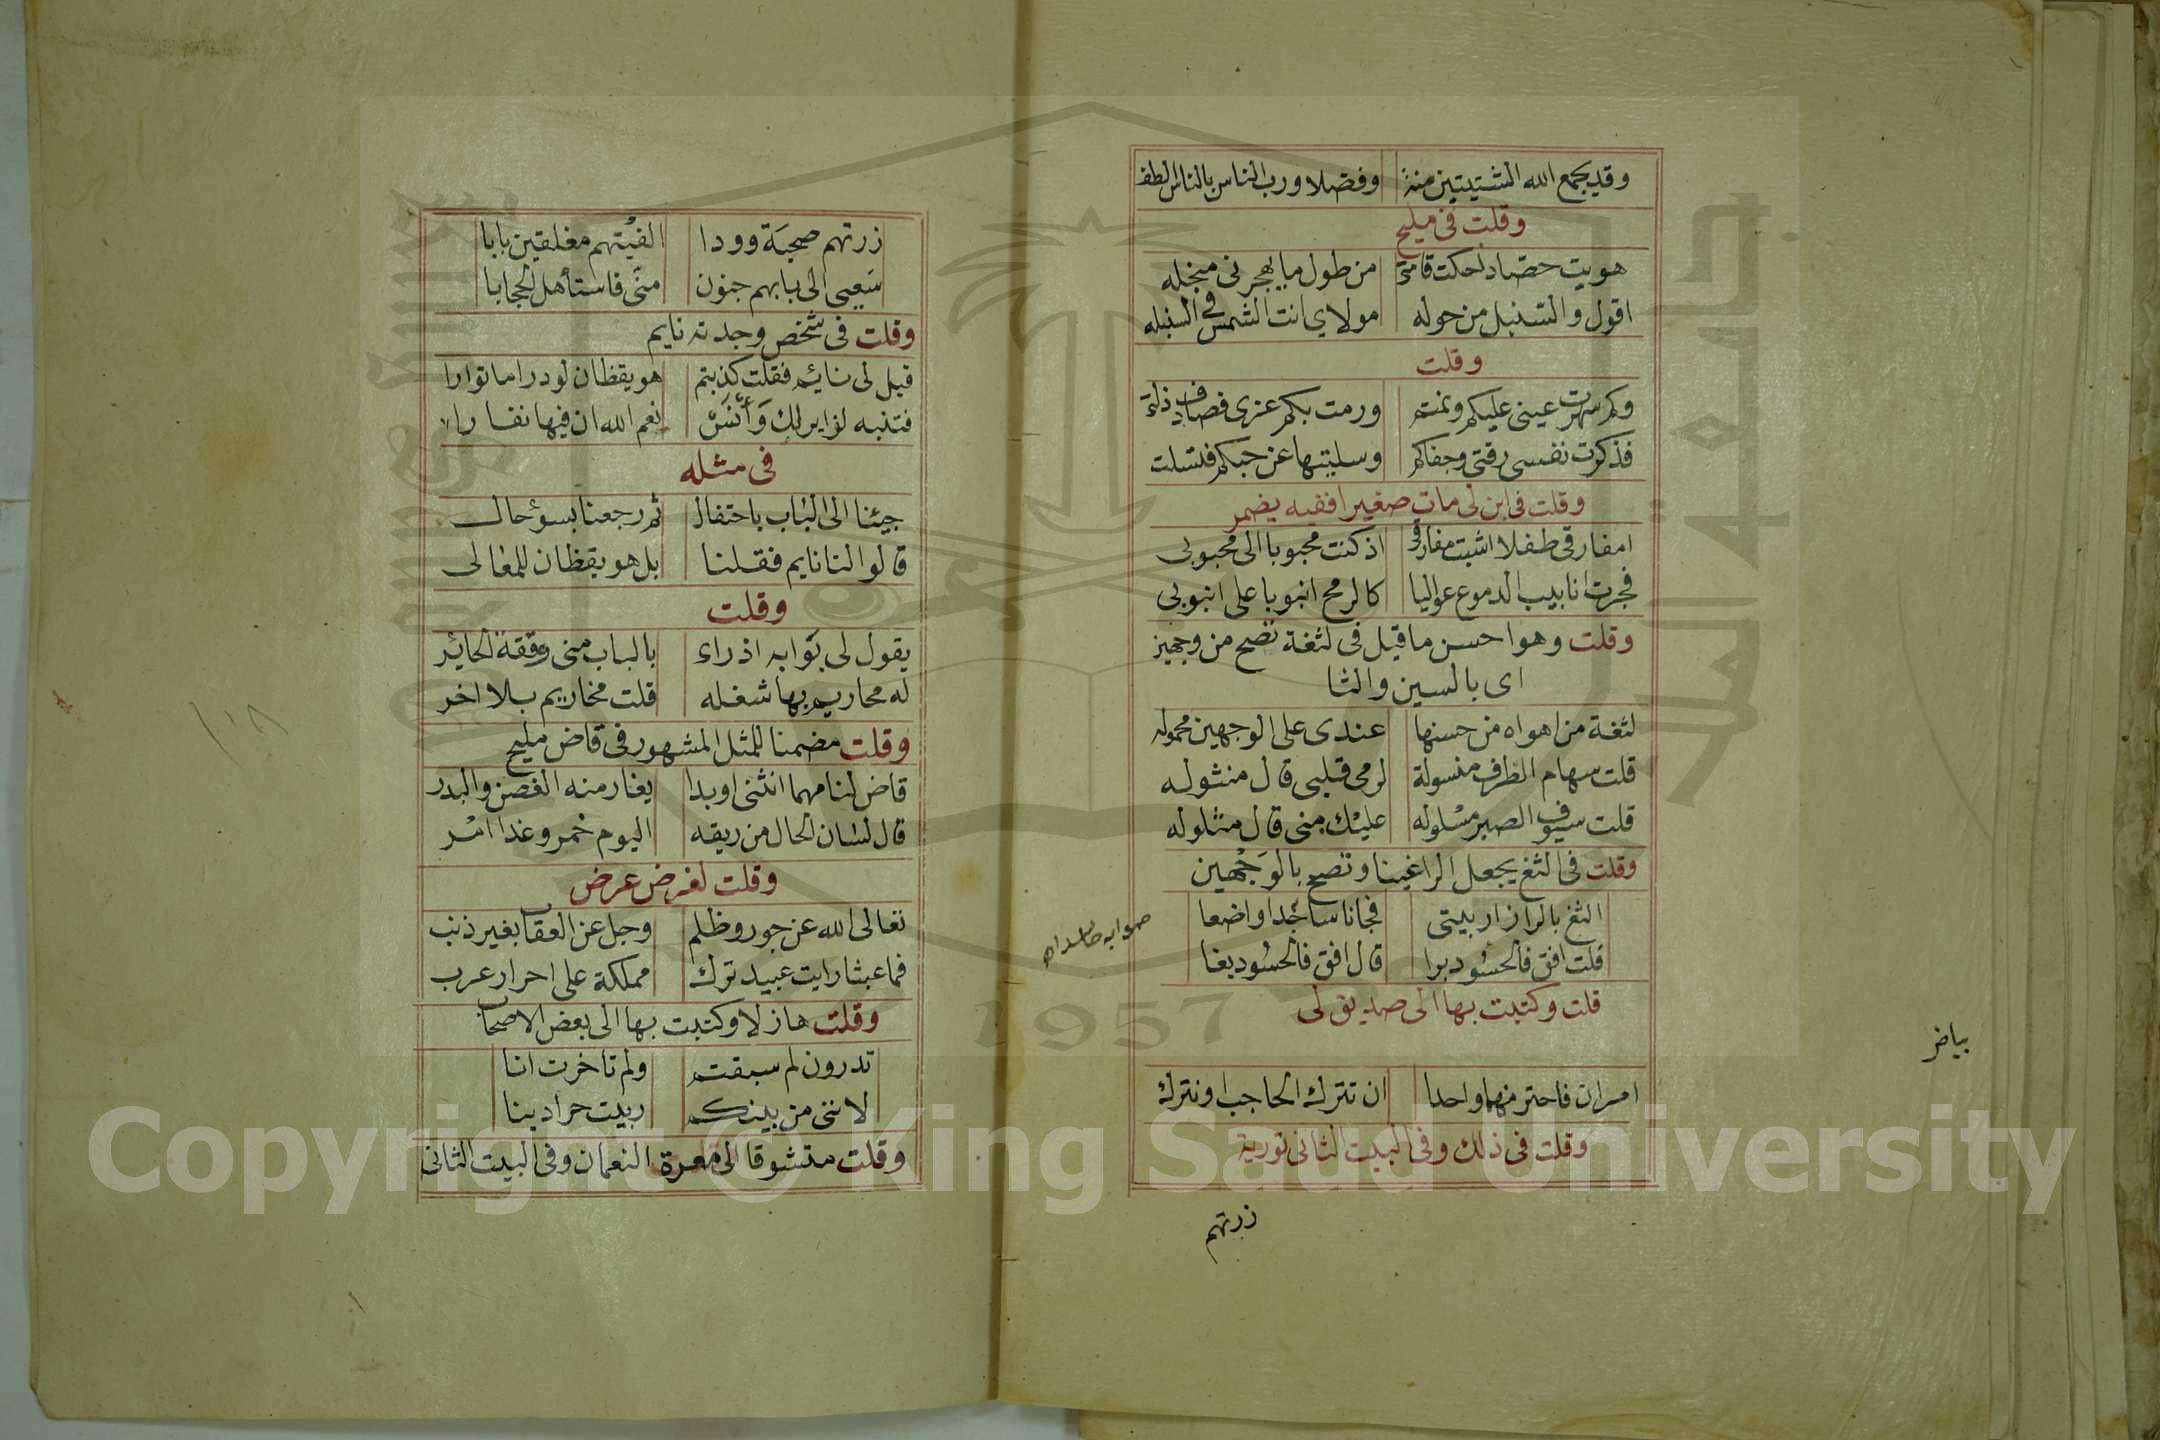 وقد يجمع الله الشتيتين منة وفضلا ورب الناس بالناس الطف
وقلت فى مليح
هويت حصادا حكت قامتى من طول ما يهجرنى منجله
اقول والسنبل من حوله مولاي انت الشمس فى السنبله
وقلت
وكم سهرت عينى عليكم ونمتم ورمت بكم عزى فصادف ذلة
فذكرت نفسى رقتى وجفاكم وسليتها عن حبكم فتسلت
وقلت فى ابن لى مات صغيرا
امفارقى طفلا اشبت مفارقى اذ كنت محبوبا الى محبوبى
فجرت انابيب الدموع عواليا كالرمح انبوبا على انبوبى
وقلت وهو احسن ما قيل فى لثغة تصح من وجهين
اى بالسين والثا
لثغة من اهواه من حسنها عندى على الوجهين محموله
قلت سهام الطرف منسولة لرمى قلبى قال منثوله
قلت سيوف الصبر مسلوله عليك منى قال مثلوله
وقلت فى الثغ يجعل الرا غينا وتصح بالوجهين
الثغ بالرا زار بيتى فجانا ساجدا واضعا
قلت افق فالحسود برا قال افق فالحسود بغا
قلت وكتبت بها الى صديق لى
بياض
امران فاختر منهما واحدا ان تترك الحاجب او نترك
وقلت فى ذلك وفى البيت الثانى تورية
زرتهم
زرتهم صحبة وودا الفيتهم مغلقين بابا
سعيى الى بابهم جنون منى فاستأهل الحجابا
وقلت فى شخص وجدته نايم
قيل لى نائم فقلت كذبتم هو يقظان لو درا ما توارا
فتنبه لزاير لك وأنس نعم الله ان فيها نفارا
فى مثله
جيئنا الى الباب باحتفال ثم رجعنا بسوء حال
قالوا لنا نايم فقلنا بل هو يقظان للمعالى
وقلت
يقول لى بوابه اذ راء بالباب منى وقفة الحائر
له محاريم بها شغله قلت مخاريم بلا اخر
وقلت مضمنا للمثل المشهور فى قاض مليح
قاض لنا مهما انثنى او بدا يغار منه الغصن والبدر
قال لسان الحال من ريقه اليوم خمر وغدا امر
وقلت لغرض عرض
تعالى الله عن جور وظلم وجل عن العقاب بغير ذنب
فما عبثا رايت عبيد ترك مملكة على احرار عرب
وقلت هازلا وكتبت بها الى بعض الاصحاب
تدرون لم سبقتم ولم تاخرت انا
لاننى من بينكم ربيت حرا دينا
وقلت متشوقا الى معرة النعمان وفى البيت الثانى
Copyright © King Saud University
1957